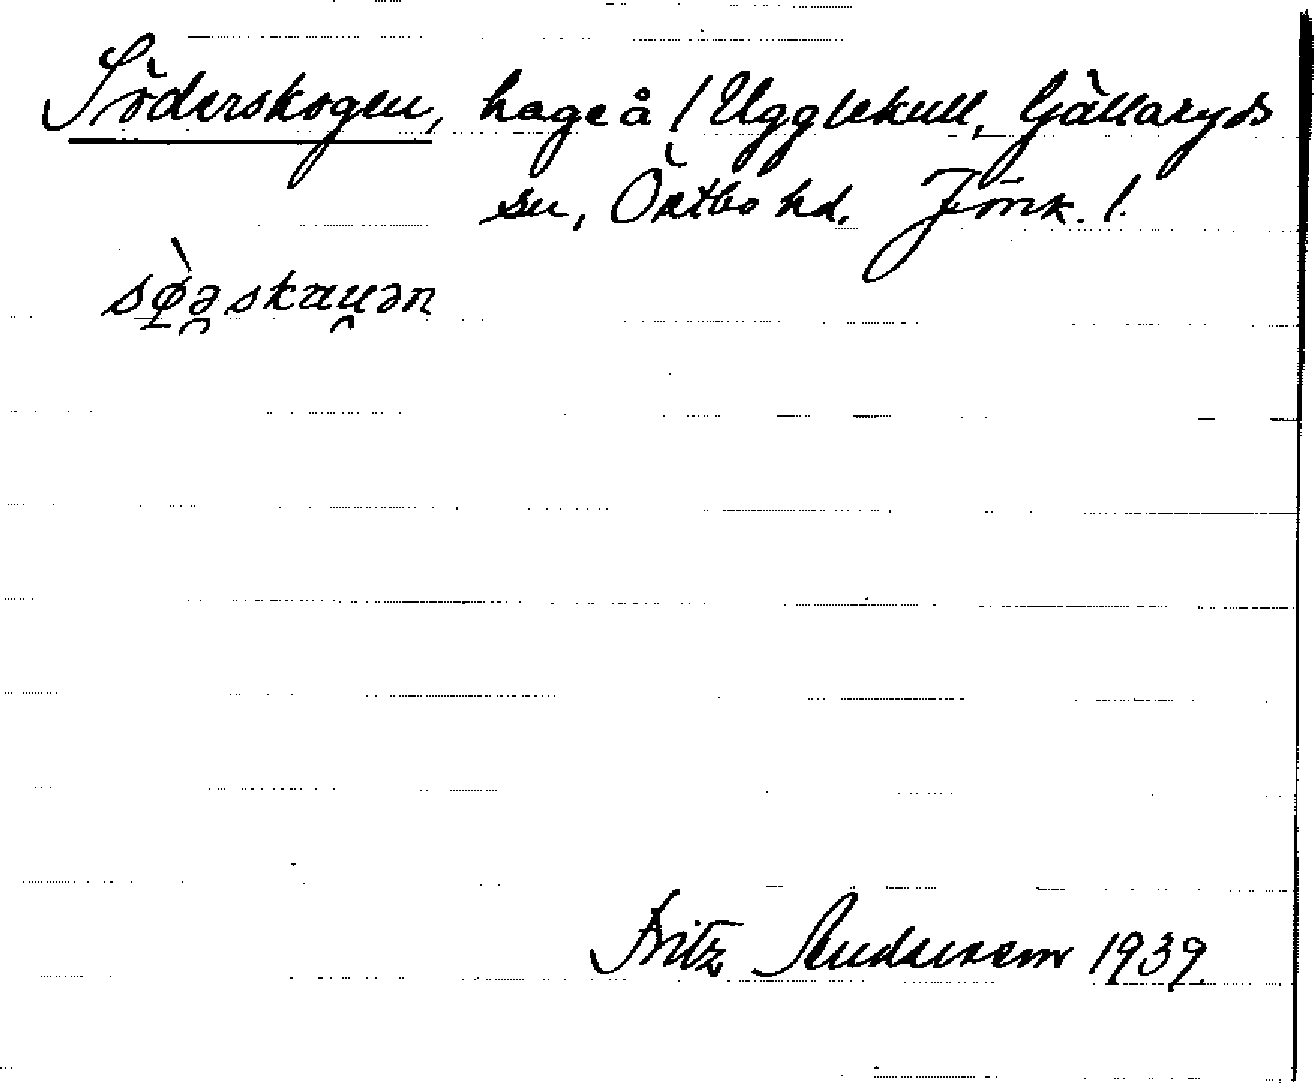 Söderskogen, hage å / Ugglekull, Gällaryds
sn, Östbo hd. Jönk. l.
sø̀̀əskauən
Fritz Andersson 1939